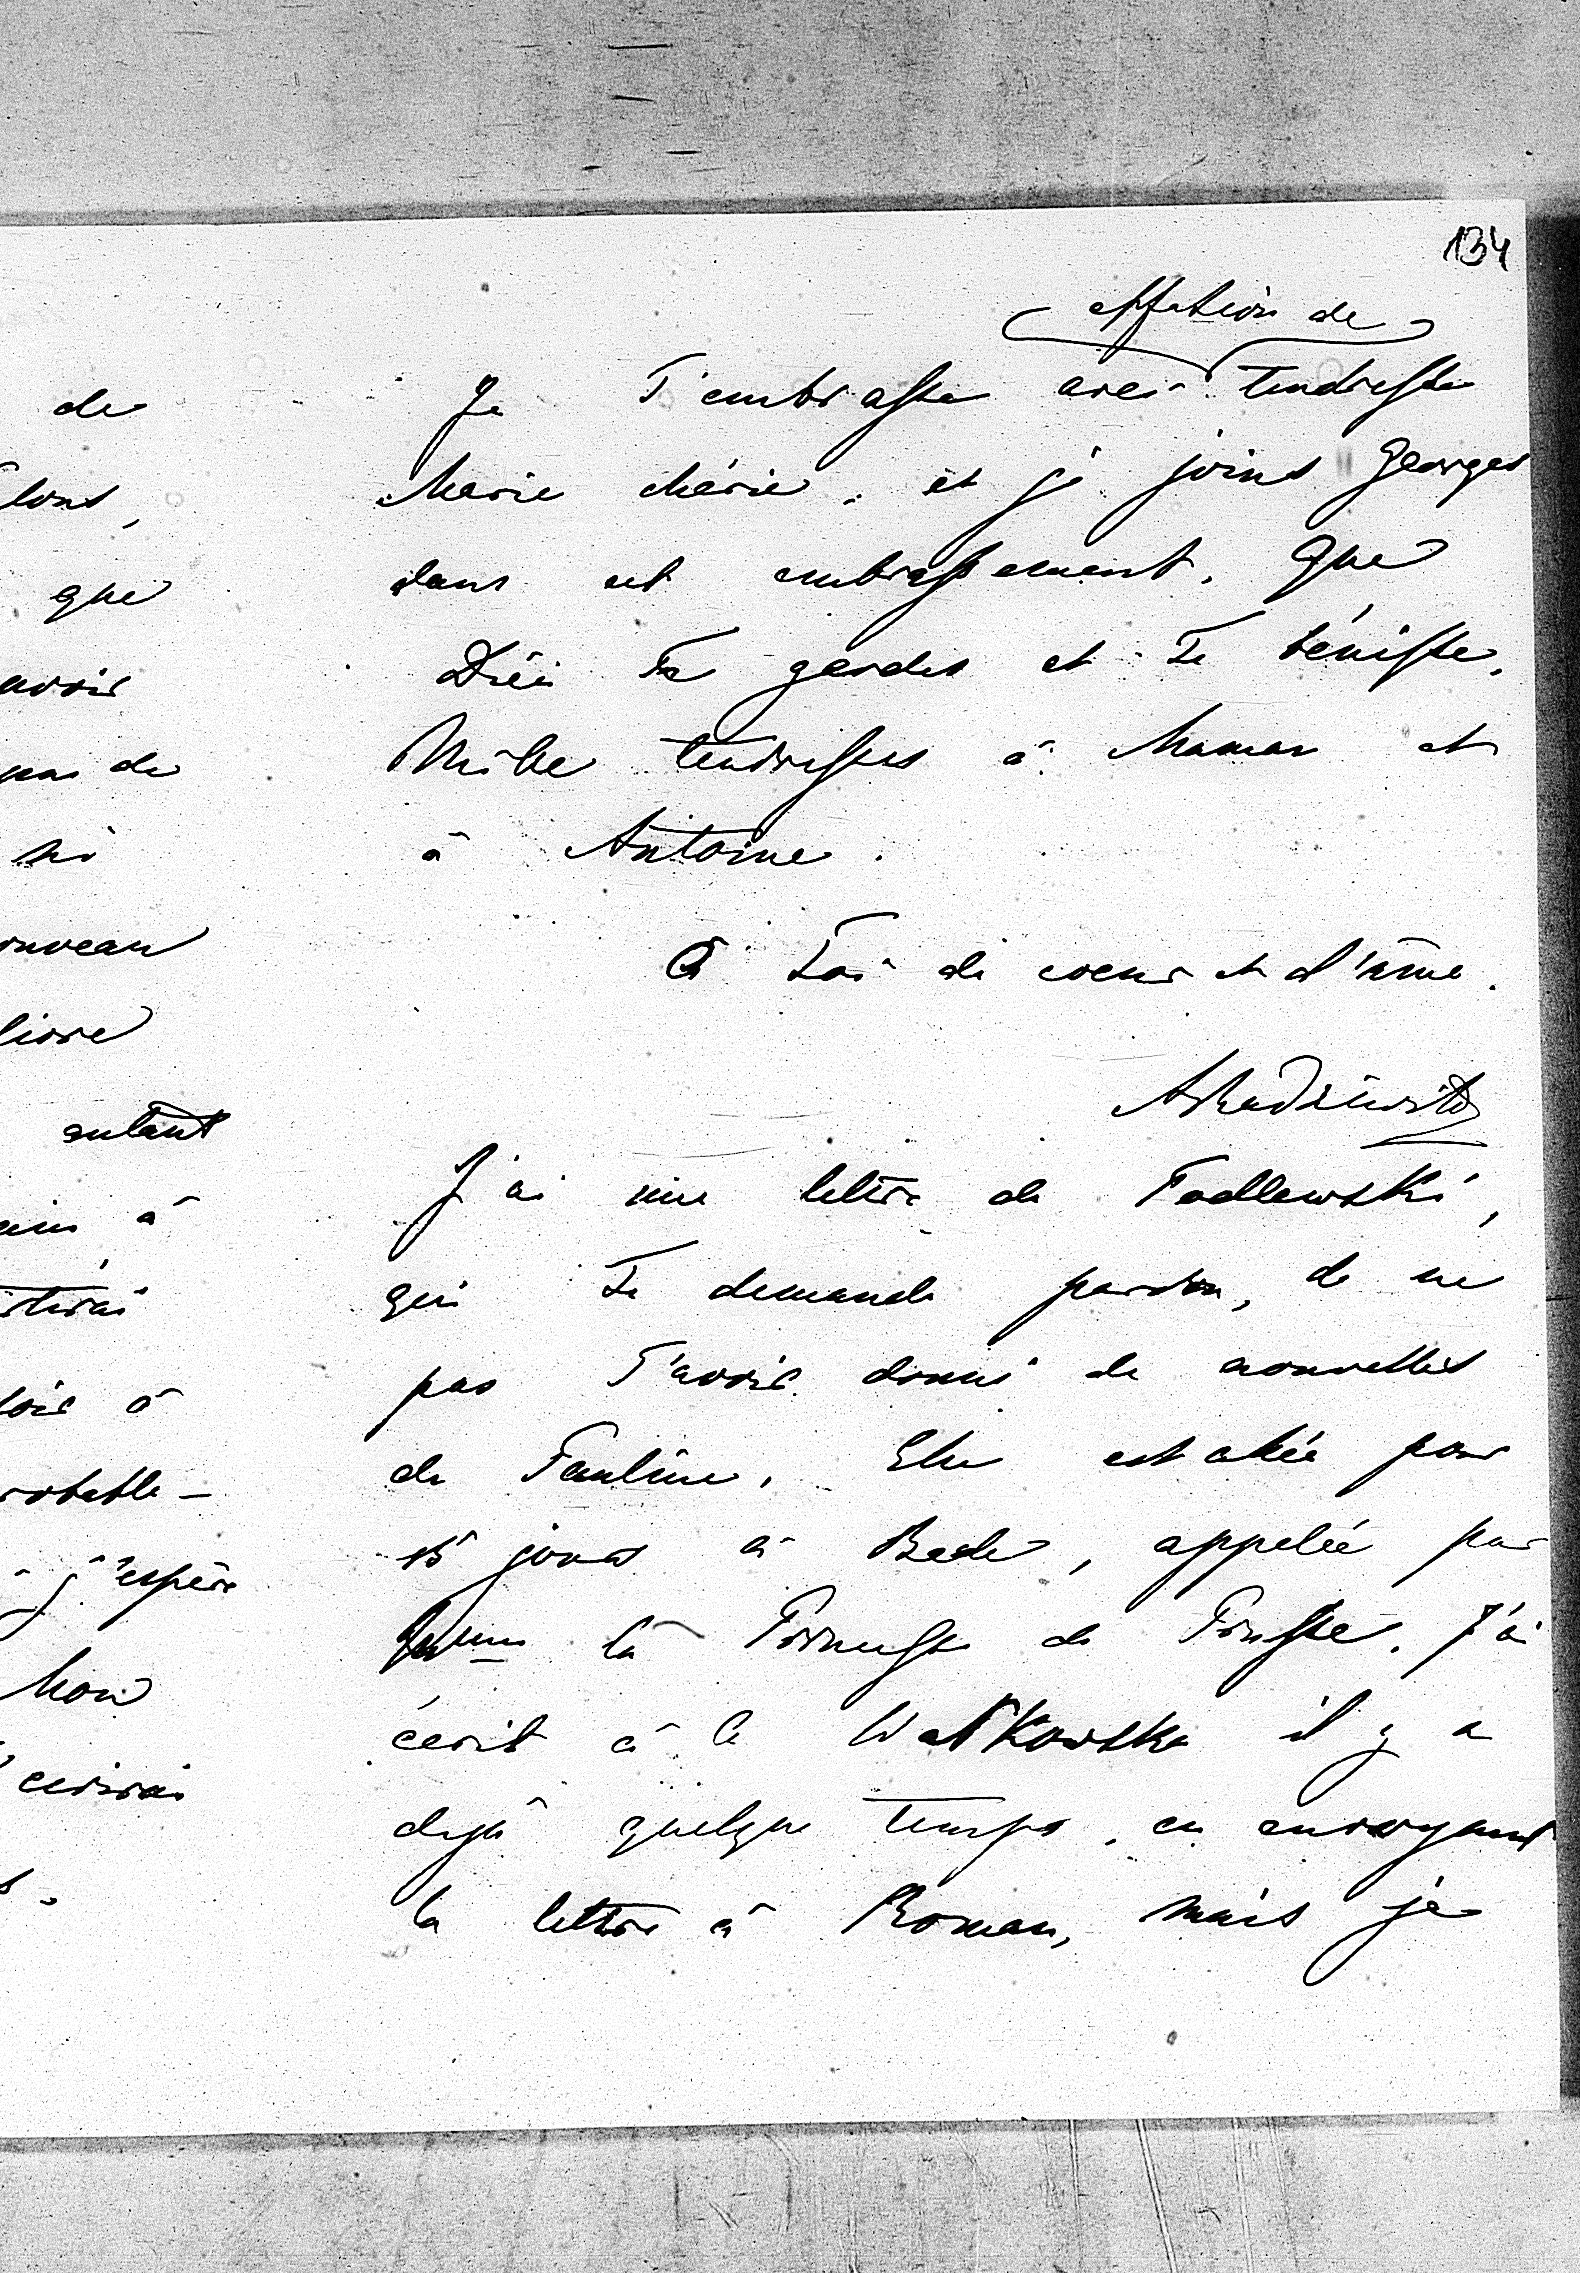 134
affection de
Je T'embrasse avec tendresse
Marie chérie, et je joins Georges
dans cet embrassement. Que
Dieu Te garde et Te bénisse.
Mille tendresses à Maman et
à Antoine.
à Toi de coeur et d'âme.
J'ai une lettre de Podlewski,
qui Te demande pardon, de ne
pas T'avoir donné de nouvelles
de Pauline. Elle est allée pour
15 jours à Bade, appelée par
la Princesse de Prusse. J'ai
écrit à la Watkowska il y a
dejà quelque temps, en envoyant
la lettre à Roman, mais je
de
que
avoir
pas de
ni
ouveau
livre
autant
à
à
robable-
j'espère
Mon